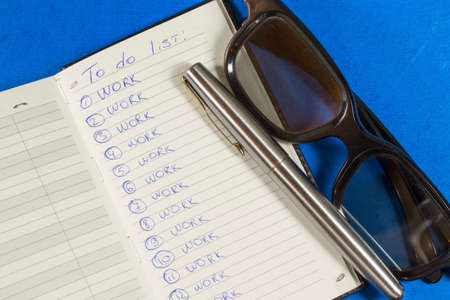 To do list:
1 WORK
2 WORK
3 WORK
4 WORK
5 WORK
6 WORK
7 WORK
8 WORK
9 WORK
10 WORK
11 WORK
12 WORK